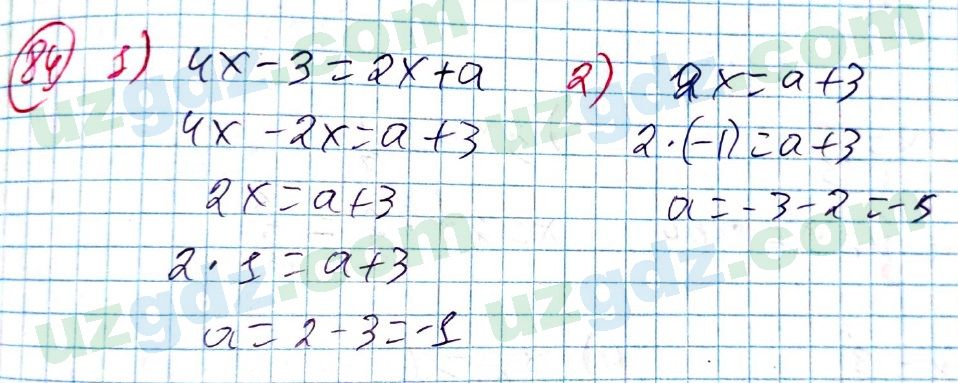 84 1) 4x - 3 = 2x + a
4x - 2x = a + 3
2x = a + 3
2 · 1 = a + 3
a = 2 - 3 = -1
2) 2x = a + 3
2 · (-1) = a + 3
a = -3 - 2 = -5
uzgdz.com
uzgdz.com
uzgdz.com
uzgdz.com